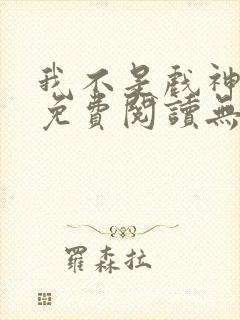 我不是戲神
免費閱讀無
羅森拉